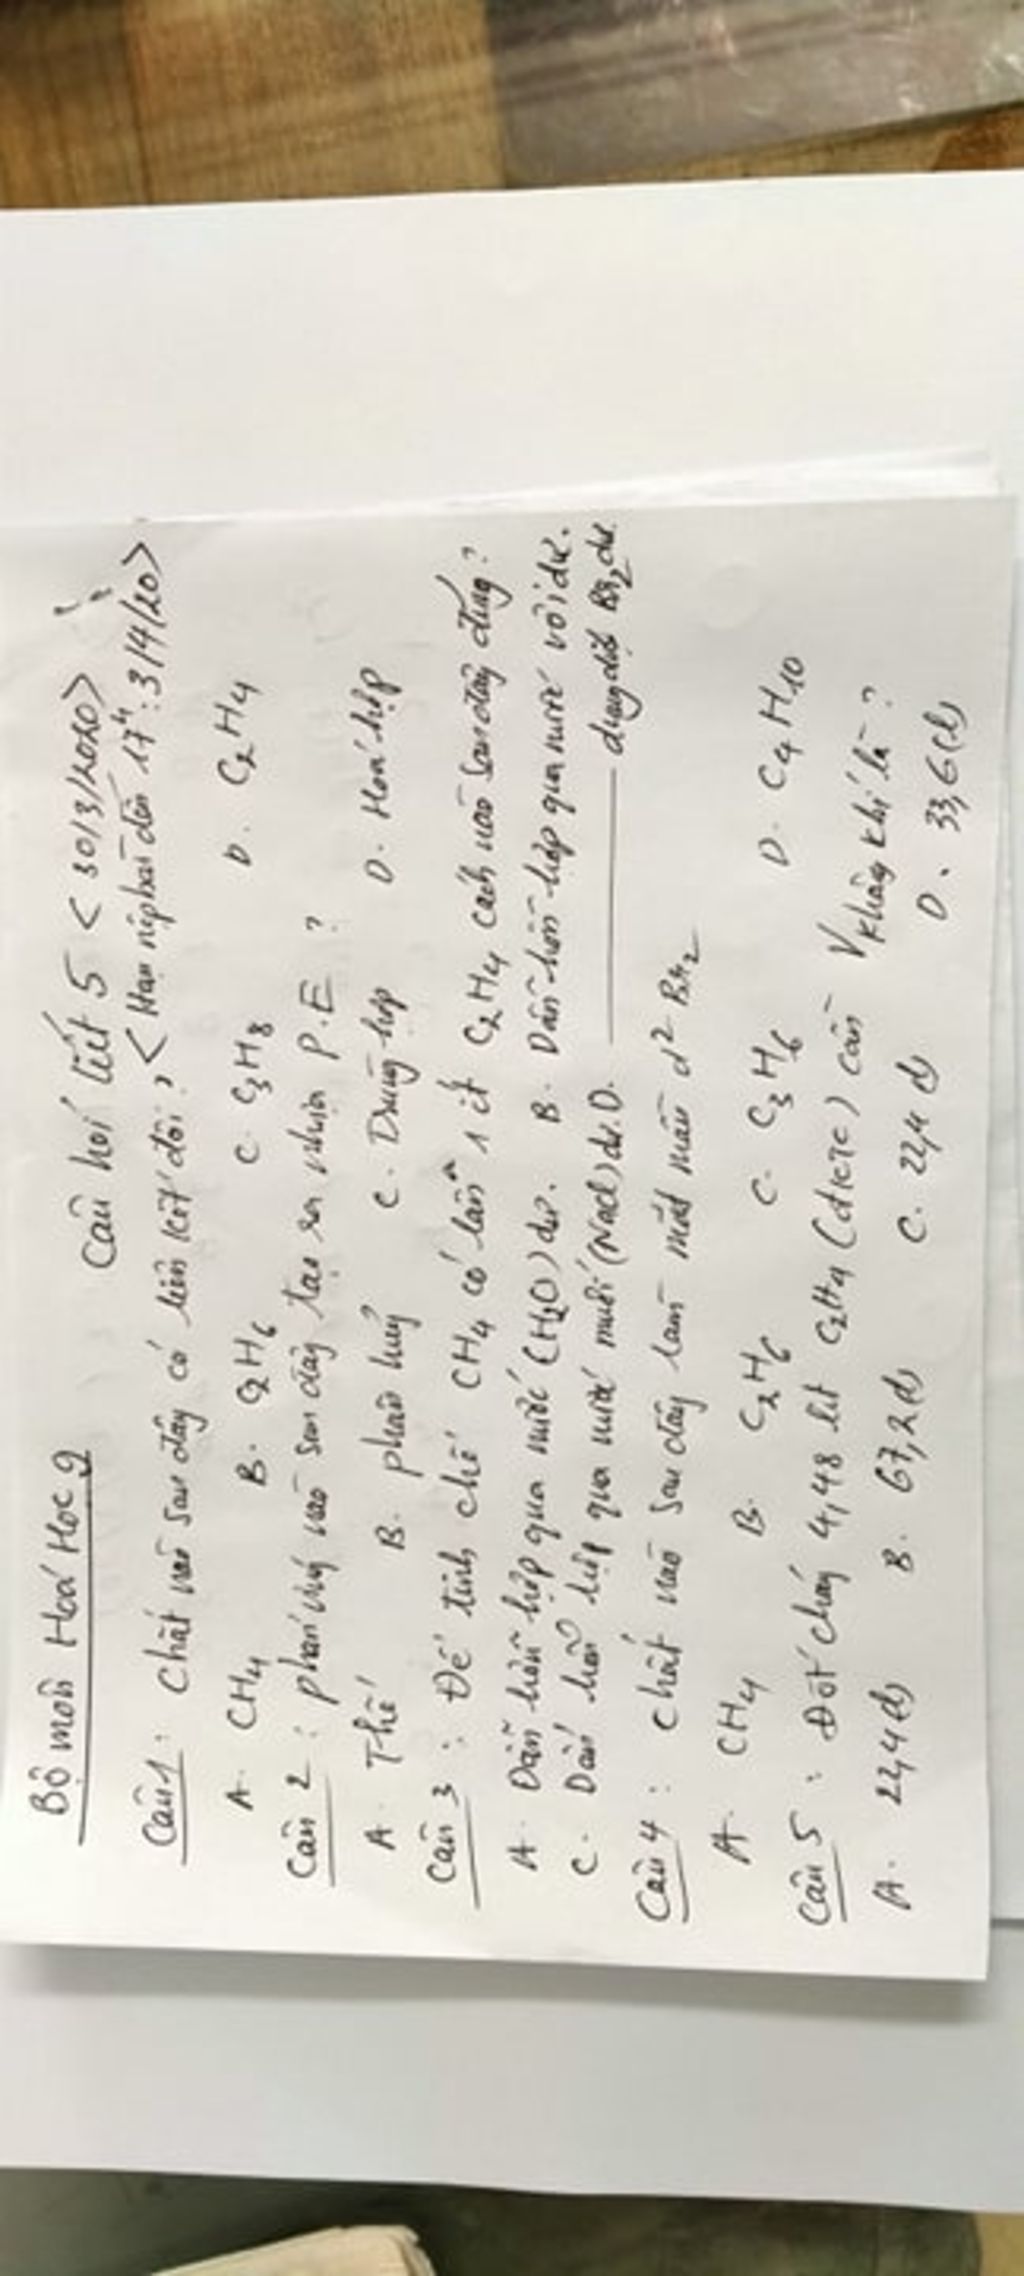 Bộ môn Hoá Học 9
Câu hỏi tiết 5 < 30/3/2020>
<Hạn nộp bài đến 17h : 3/4/20>
Câu 1 : Chất nào sau đây có liên kết đôi ?
A. CH4 B. C2H6 C. C3H8 D. C2H4
Câu 2 : phản ứng nào sau đây tạo ra nhựa P.E ?
A. Thế B. phân huỷ C. Trùng hợp D. Hoá hợp
Câu 3 : Để tinh chế CH4 có lẫn 1 ít C2H4 cách nào sau đây đúng ?
A. Dẫn hỗn hợp qua nước (H2O) dư. B. Dẫn hỗn hợp qua nước vôi dư.
C. Dẫn hỗn hợp qua nước muối (NaCl) dư. D. ——— dung dịch Br2 dư
Câu 4 : Chất nào sau đây làm mất màu d2 Br2
A. CH4 B. C2H6 C. C3H6 D. C4H10
Câu 5 : Đốt cháy 4,48 lít C2H4 (đktc) cần Vkhông khí là ?
A. 22,4 (l) B. 67,2 (l) C. 22,4 (l) D. 33,6 (l)